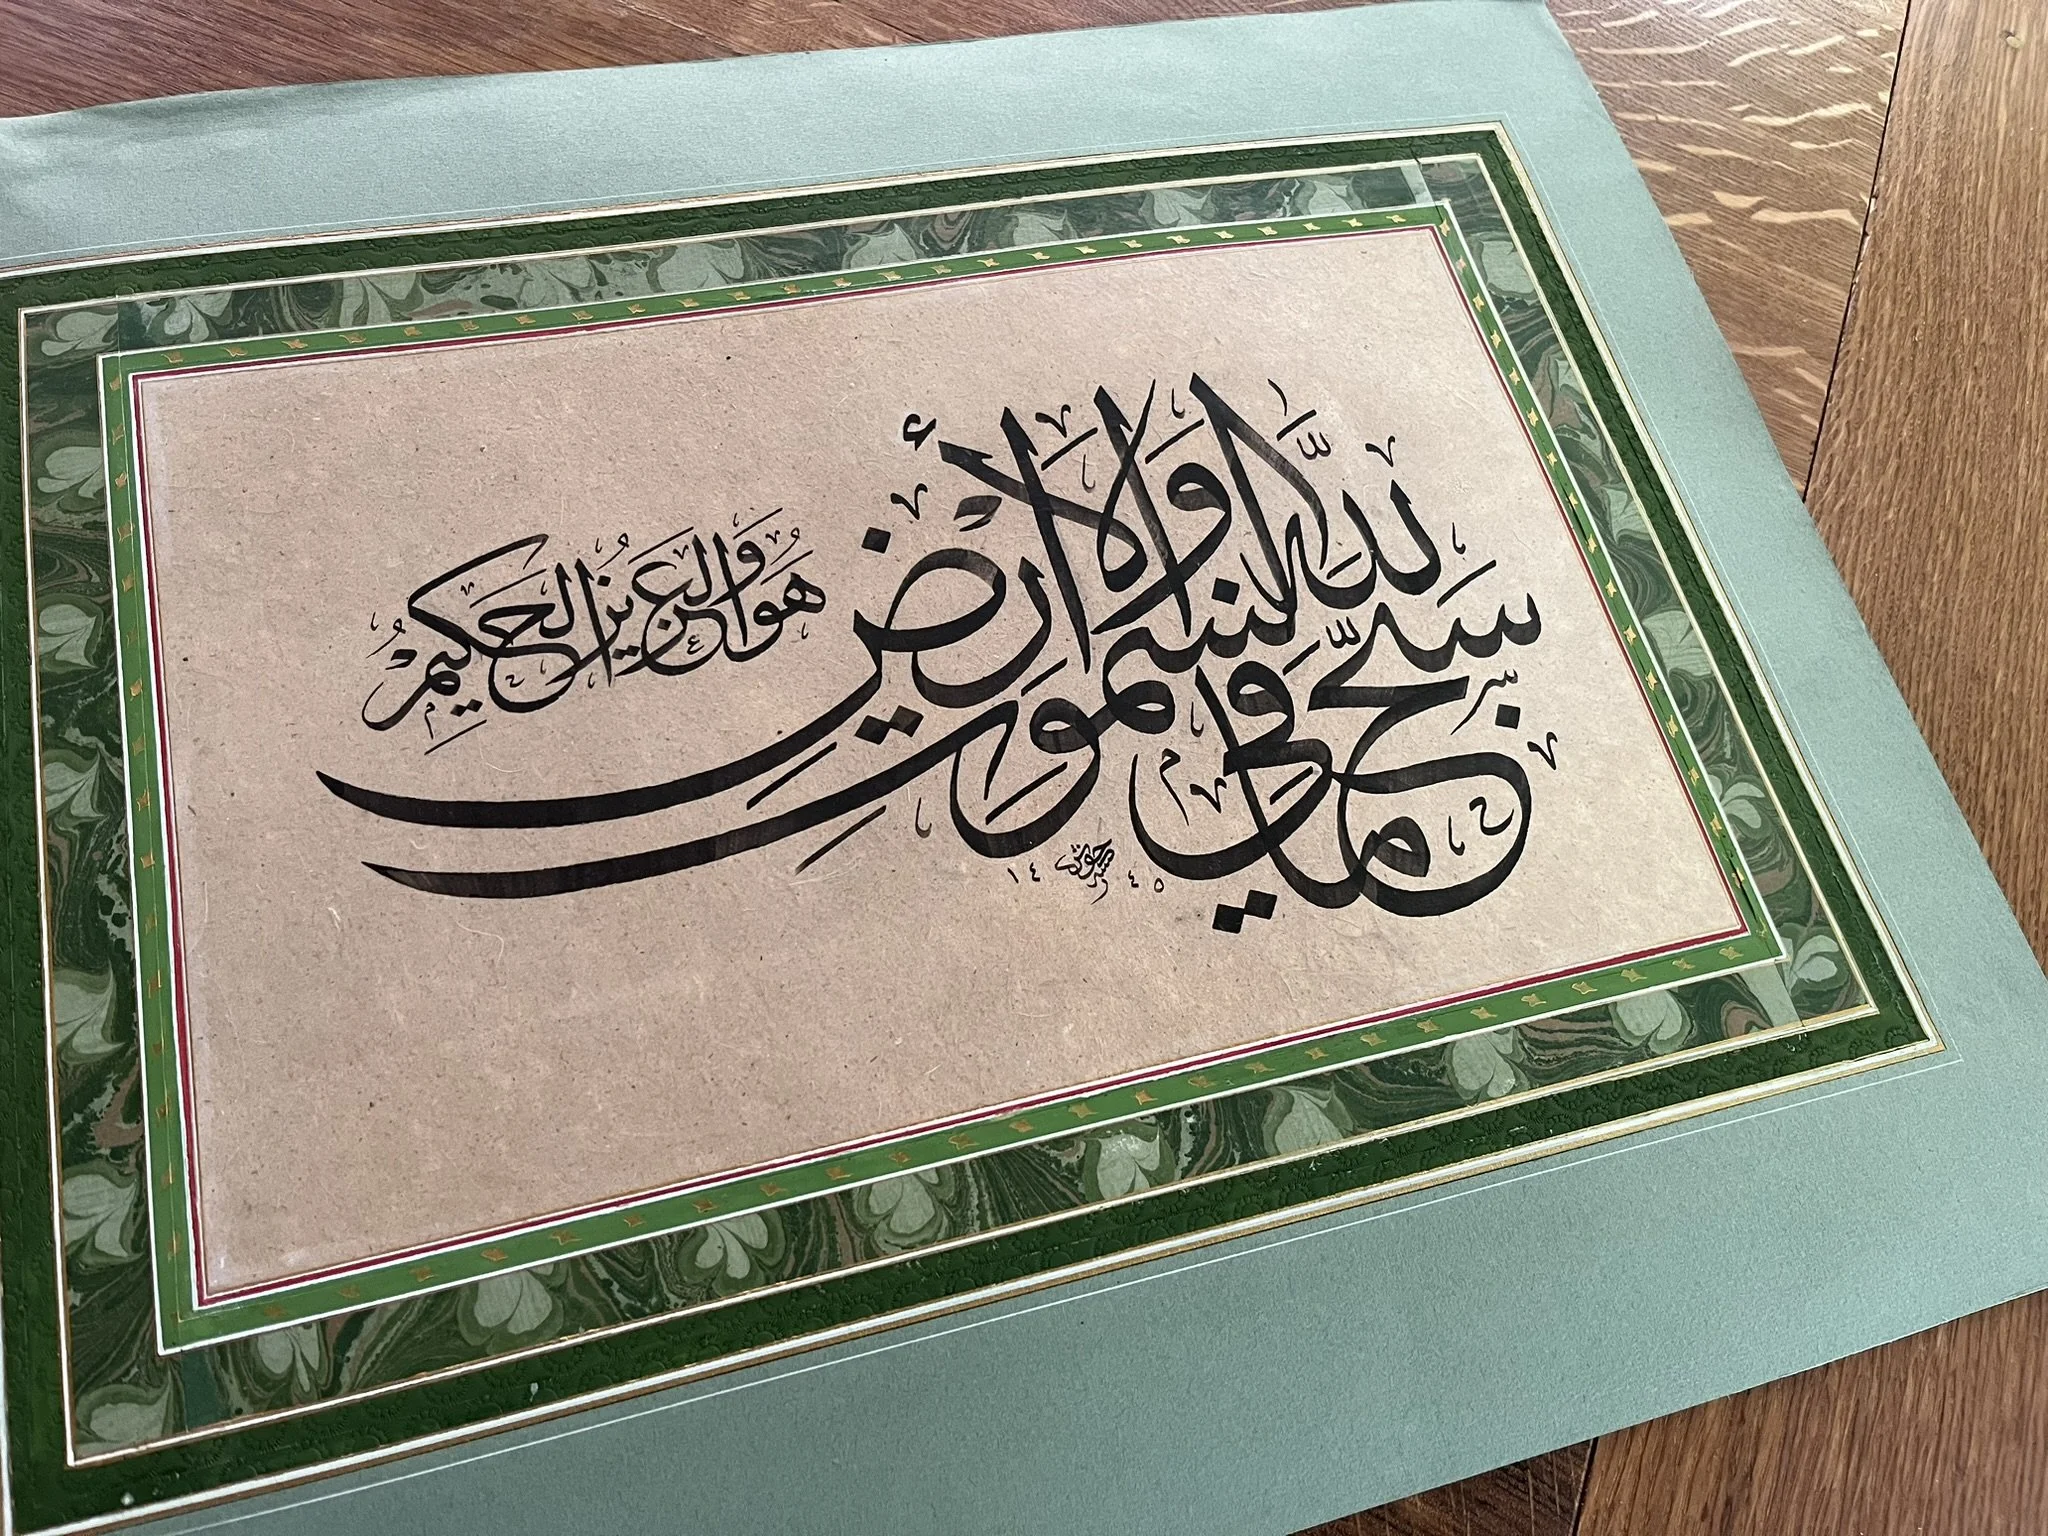 سَبَّحَ لِلَّهِ مَا فِي السَّمٰوٰتِ وَالْأَرْضِ وَهُوَ الْعَزِيزُ الْحَكِيمُ
١٤٤٥